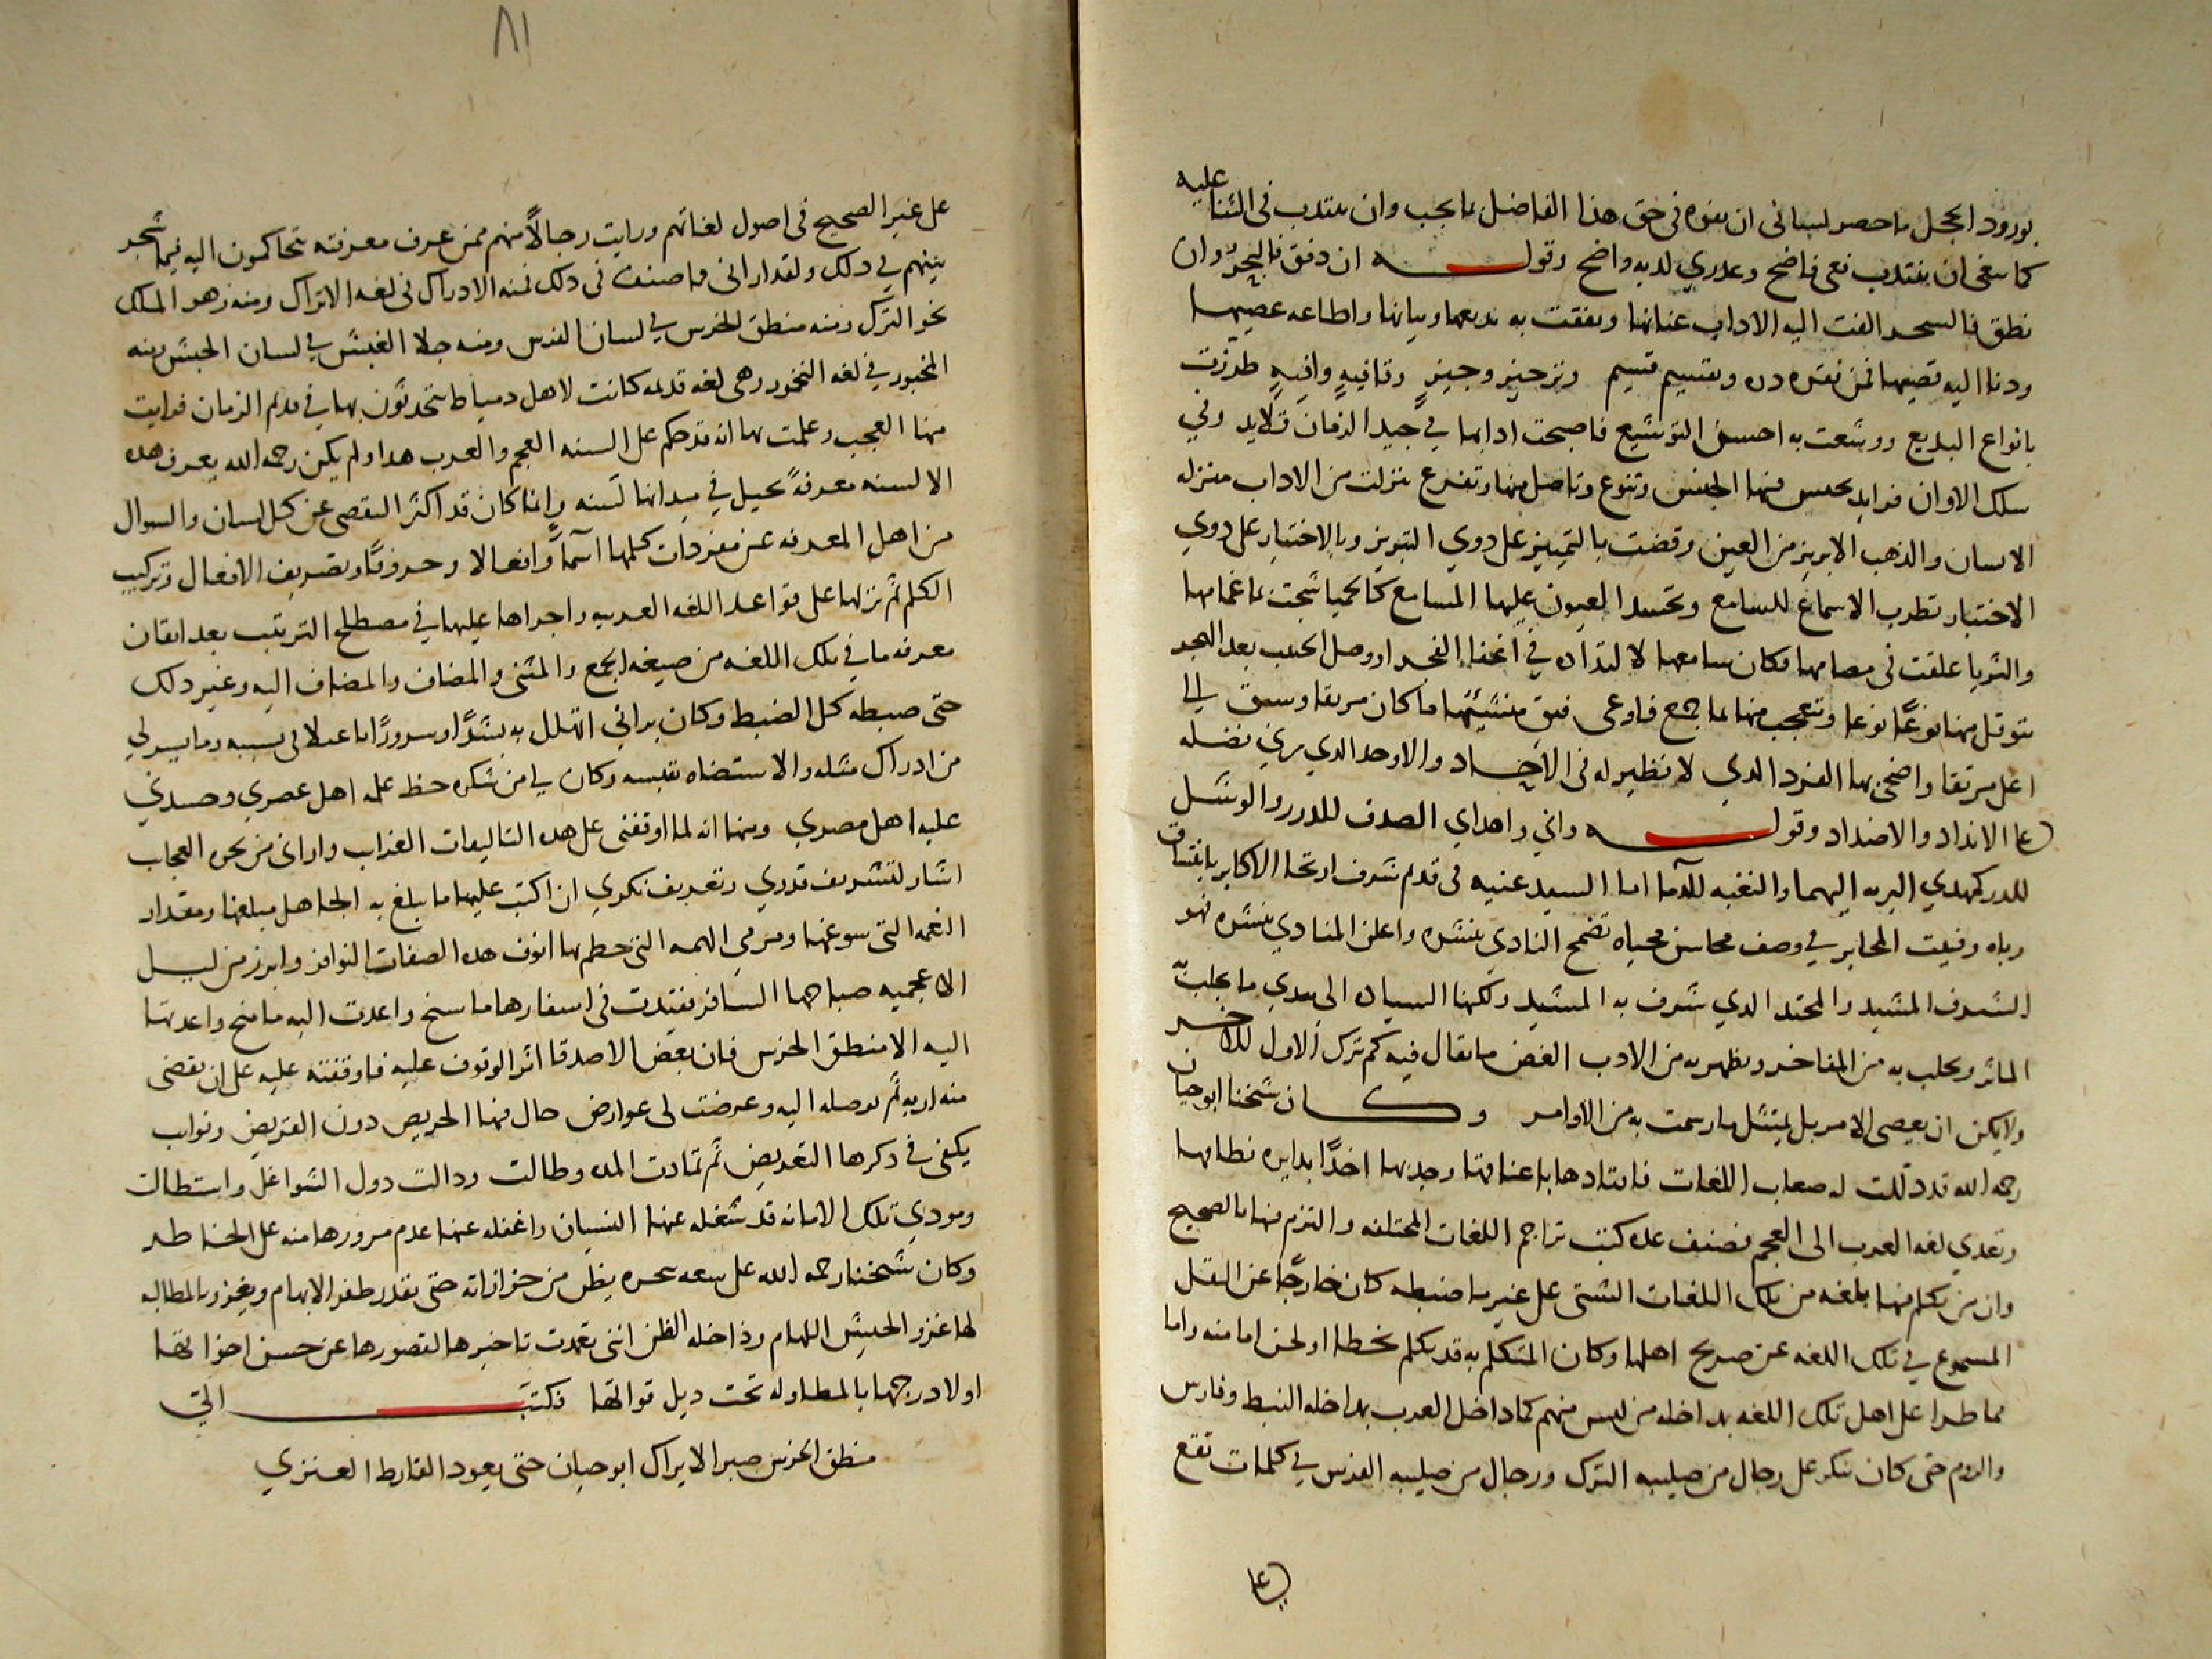 بورود الحجل ما حصر لساني ان يفوه في حق هذا الفاضل بما يجب وان ينتدب في الثنا عليه
كما ينبغى ان ينتدب فعى فاضح وعذري لديه واضح وقولـــه ان دقق فالبحر وان
نطق فالسحر القت اليه الاداب عنانها ونفقت به بديعها وبيانها واطاعه عصيها
ودنا اليه قصيها فمن فقره دره وتقسيم قسيم وترجيز وجيز وقافيه وافيه طرزت
بانواع البديع ووشعت به احسن التوشيع فاصبحت ادابها في جيد الزمان قلايد وفي
سلك الاوان فرايد بجنس فيها الجنس وتنوع وتاصل منها وتفرع نزلت من الاداب منزله
الانسان والذهب الابريز من العين وقضت بالتمييز على دوي التبريز وبالاختيار على دوي
الاختبار تطرب الاسماع للسامع وتحسد العيون عليها المسامع كالحميا شجت بما غمامها
والثريا علقت في مصامها فكان سامعها لالتداده في اغفا الفجر او وصل الحبيب بعد الهجر
يتوقل منها نوعا نوعا وتتعجب منها لما جمع فاوعى فوق منشيئها ما كان مرتقا وسبق الى
اعلى مرتقا واضحى بها الفرد الدي لا نظير له في الاجـــاد والاوحد الدي بري فضله
على الانداد والاضداد وقولـــه واني واهداي الصدف للدرر والوشل
للدر كمهدي البريه اليهما والنغبه للداما اما السيد عنيه في قدم شرف ارتحا الاكابر بانتساق
رباه وفيت المحابر في وصف محاسن محياه تضمح النادي بنشره واعلن المنادي بنشره فهو
الشرف المشيد والمحتد الدي شرف به المشيد ولكنها السياده الى يبدي ما يجلب
الماثر ويجلب به من المفاخر ويظهر به من الادب الغض ما يقال فيه كم ترك الاول للاخـــر
ولا يمكن ان يعصى الامر بل يمتثل ما رسمت به من الاوامر وكـــان شيخنا ابو حيان
رحمه الله قد دللت له صعاب اللغات فاقتادها باعناقها وجدبها اخدا بدايره نطاقها
وتعدي لغه العرب الى العجم فصنف عده كتب تراجم اللغات المختلفه والتزم فيها بالصحيح
وان من تكلم منها بلغه من تلك اللغات الشتى على غير ما ضبطه كان خارجا عن النقل
المسموع في تلك اللغه عن صريح اهلها وكان المتكلم به قد تكلم بخطا او لحن اما منه واما
مما طرا على اهل تلك اللغه بمداخله من ليس منهم كما داخل العرب بمداخله النبط وفارس
والروم حتى كان ينكر على رجال من صليبه الترك ورجال من صليبه الفرس في كلمات تقع
على
٨١
على غير الصحيح في اصول لغاتهم ورايت رجالا منهم ممن عرف معرفته تتحاكمون اليه فيما شجر
بينهم في دلك ولقد اراني ما صنف في دلك فمنه الادراك في لغه الاتراك ومنه زهو الملك
نحو الترك ومنه منطق الخرس في لسان الفرس ومنه جلا الغبش في لسان الحبش ومنه
المخبور في لغه اليخمور وهي لغه قديمه كانت لاهل دمياط يتحدثون بها في قديم الزمان فرايت
منها العجب وعلمت بها انه قد حكم على السنه العجم والعرب هدا ولم يكن رحمه الله يعرف هده
الالسنه معرفة يجيل في ميدانها لسنه وانما كان قد اكثر التقصى عن كل لسان والسوال
من اهل المعرفه عن مفردات كلمها اسما وافعالا وحروفا وتصريف الافعال وتركيب
الكلم ثم نزلها على قواعد اللغه العربيه واجراها عليها في مصطلح الترتيب بعد اتقان
معرفه ما في تلك اللغه من صيغه الجمع والمثنى والمضاف والمضاف اليه وغير دلك
حتى ضبطه كل الضبط وكان يراني اتهلل به بشرا وسرورا باعتلاى بسببه وما يسر لي
من ادراك مثله والاستضاه بقبسه وكان لي من شكره حظ علمه اهل عصري وحسدني
عليه اهل مصري ومنها انه لما اوقفنى على هده التاليفات الغراب واراني من بحره العجاب
اشار لتشريف قدري وتعريف نكري ان اكتب عليها ما يبلغ به الجاهل مبلغها ومقدار
النعمه التي سوغها ومرمي الهمه التي خطم بها انوف هده الصفات النوافر وابرز من ليل
الاعجميه صباحها السافر فقيدت في اسفارها ما سنح واعدت اليه ما منح واعدتها
اليه الا منطق الخرس فان بعض الاصدقا اثر الوقوف عليه فاوقفته عليه على ان يقضى
منه اربه ثم يوصله اليه وعرضت لى عوارض حال فيها الحريص دون القريض ونوايب
يكفى في دكرها التعريض ثم تمادت المده وطالت ودالت دول الشواغل واستطالت
ومودي تلك الامانه قد شغله عنها النسيان واغفله عنها عدم مرورها منه على الخاطر
وكان شيخنا رحمه الله على سعه بحره يضن من خزاراته حتى بقدر ظفر الابهام ويغزو بالمطالبه
لها غزو الجيش اللهام وداخله الظن انني تعمدت تاخيرها لقصورها عن حسن اخواتها
او لادرجها بالمطاوله تحت ديل فواتها فكتبـــــ الي
منطق الخرس صبر الايراك ابو حيان حتى يعود القارظ العنزي